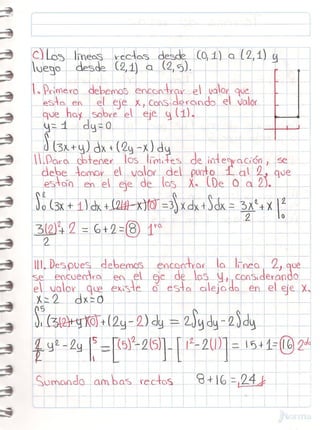 c) Los lineas rectas desde (0,1) a (2,1) y
luego desde (2,1) a (2,5).
I. Primero debemos encontrar el valor que
esta en el eje x, considerando el valor
que hay sobre el eje y (1).
y=1 dy=0
∫(3x+y) dx + (2y-x) dy
II. Para obtener los limites de integración, se
debe tomar el valor del punto 1 al 2, que
están en el eje de los X. (De 0 a 2).
∫₀² (3x+1) dx + (2(1)-x)(0) = 3∫x dx + ∫dx = 3x²/2 + x |₀²
3(2)²/2 + 2 = 6+2 = 8 1ra
III. Despues debemos encontrar la linea 2, que
se encuentra en el eje de los y, considerando
el valor que existe o esta alejado en el eje x.
x=2 dx=0
∫₁⁵ (3(2)+y)(0) + (2y-2) dy = 2∫y dy - 2∫dy
2/2 y² - 2y |₁⁵ = [(5)²-2(5)] - [1²-2(1)] = 15+1 = 16 2da
Sumando ambas rectas 8+16 = 24
Norma